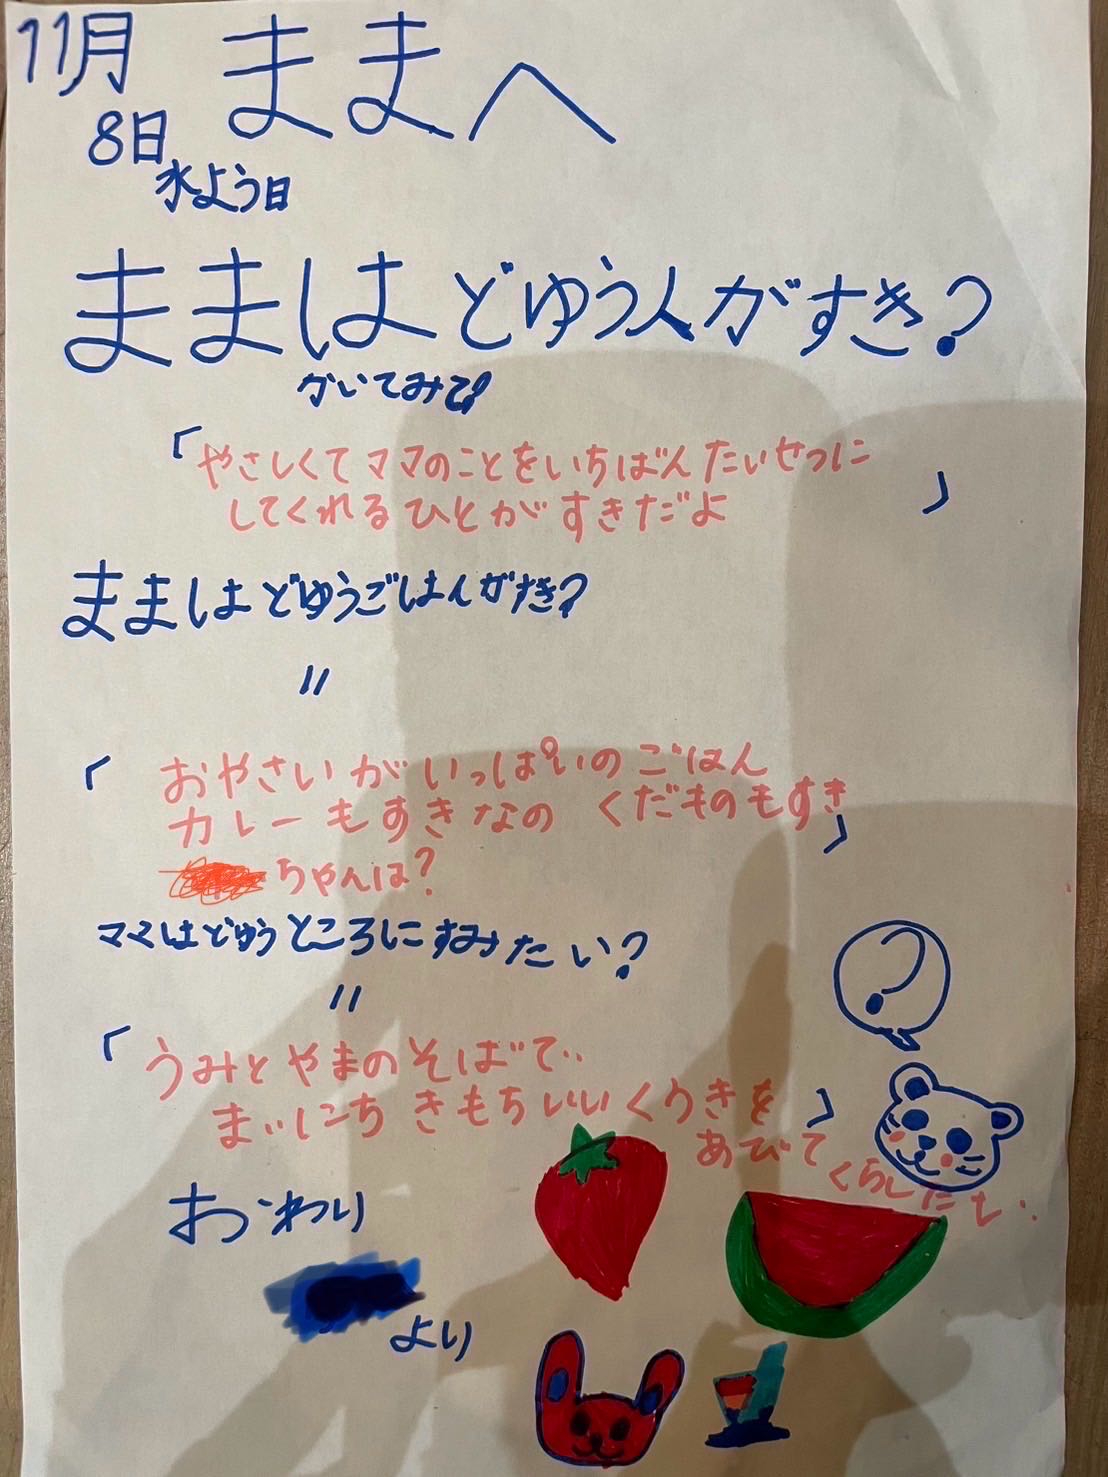 11月
8日
水よう日
ままへ
ままはどゆう人がすき?
かいてみて!
「やさしくてママのことをいちばんたいせつに
してくれるひとがすきだよ」
ままはどゆうごはんがすき?
〃
「おやさいがいっぱいのごはん
カレーもすきなの くだものもすき」
ちゃんは?
ママはどゆうところにすみたい?
〃
「うみとやまのそばで、
まいにちきもちいいくうきを」
あびて
くらしたい。
?
おわり
より